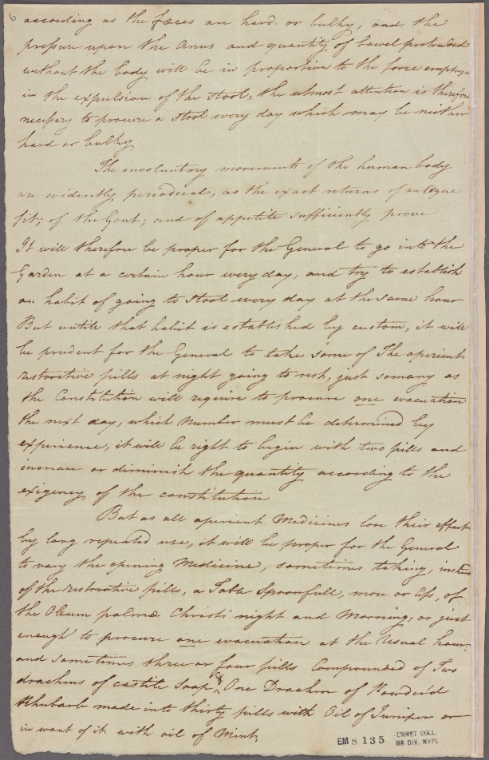 6 according as the fœces are hard or bulky, and the
pressure upon the Anus and quantity of bowel protruded
without the body will be in proportion to the force employ'd
in the expulsion of the stool, the utmost attention is therefore
necessary to procure a stool every day which may be neither
hard or bulky
The involuntary movements of the human body
are evidently periodical, as the exact returns of an Ague
fit; of the Gout; and of appetite sufficiently prove
It will therefore be proper for the General to go into the
Garden at a certain hour every day, and try to establish
an habit of going to stool every day at the same hour
But untill that habit is established by custom, it will
be prudent for the General to take some of The aperient
restorative pills at night going to rest, just so many as
the Constitution will require to procure one evacuation
the next day, which Number must be determined by
experience, it will be right to begin with two pills and
increase or diminish the quantity according to the
exigency of the constitution
But as all aperient Medicines lose their effect
by long repeated use, it will be proper for the General
to vary the opening Medicine, sometimes taking, instead
of the restorative pills, a Table Spoonfull, more or less, of
the Oleum palmæ Christi night and Morning, or just
enough to procure one evacuation at the Usual hour
and sometimes three or four pills Compounded of Two
drachms of castile Soap & One Drachm of Powder'd
Rhubarb made into thirty pills with Oil of Juniper or
in want of it with oil of Mint,
EM 8135
EMMET COLL.
MS DIV. NYPL